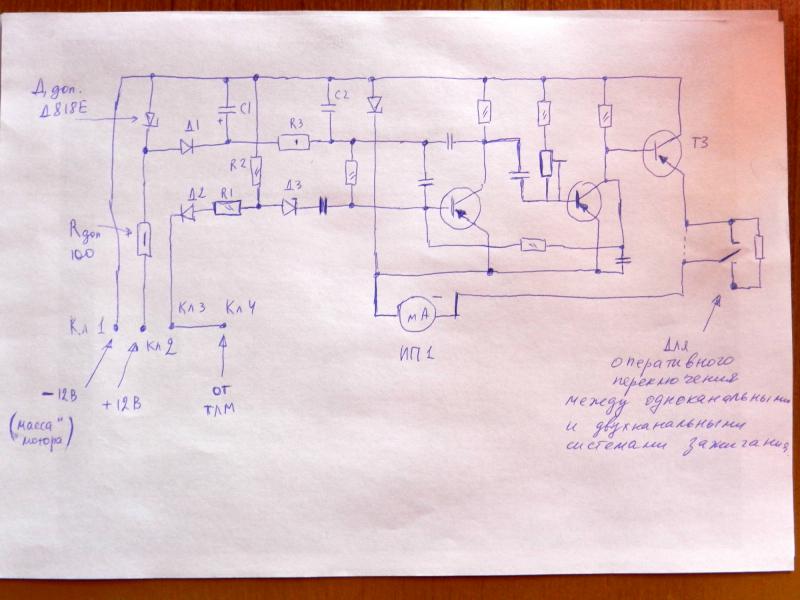 Д доп.
Д818Е
Д1
С1
+
R3
С2
R2
Д2
R1
Д3
Т3
Rдоп
100
Кл 1
Кл2
Кл3
Кл4
мА
−
ИП1
−12В
("масса"
мотора)
+12В
от
ТЛМ
Для
оперативного
переключения
между одноканальными
и двухканальными
системами зажигания.